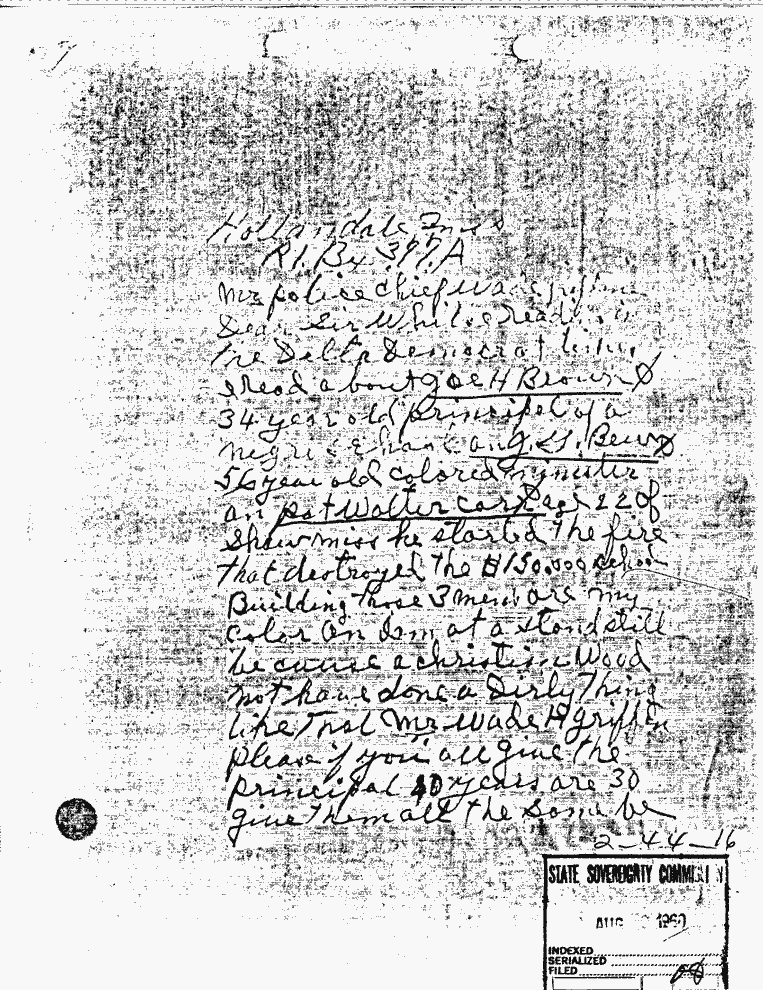 Hollandale, Miss
Rt. Bx 397A
Mr police chief Wade
Dear Sir While reading in
the Delta Democrat times
I read about Joe H Brown
34 year old principel of a
negro an J. H.
56 year old colored minister
an pat Walter Carr age 22 of
Shaw miss he started the fire
that destroyed the $150,000 school
Building those 3 mens are my
color an Iam at a stand still
because a christian Wood
not have done a Dirty Thing
like That Mr Wade H griffin
please if you all give the
principal 10 years are 30
give them all the same be
2-44-16
STATE SOVEREIGNTY COMM
AUG 1960
INDEXED
SERIALIZED
FILED